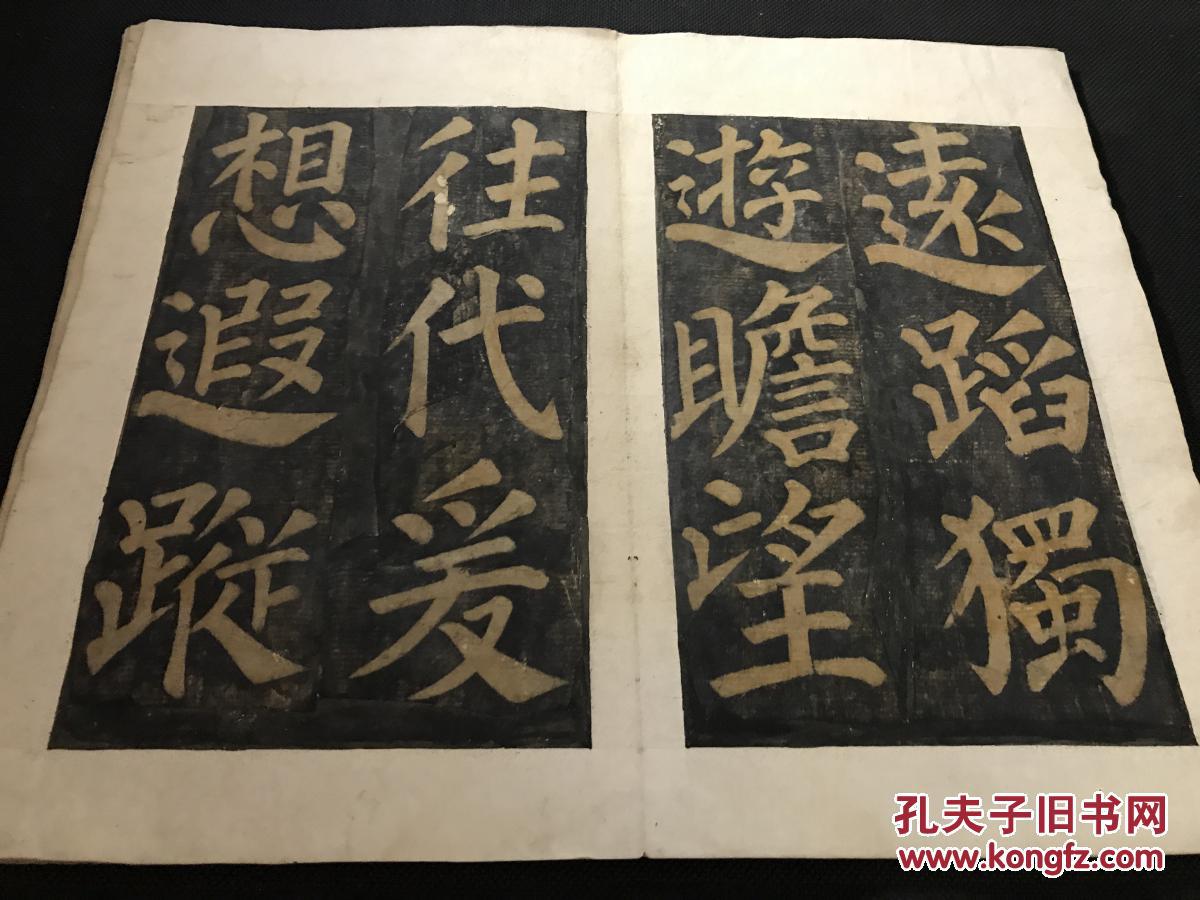 遠蹈獨
遊瞻望
往代爰
想遐蹤
孔夫子旧书网
www.kongfz.com